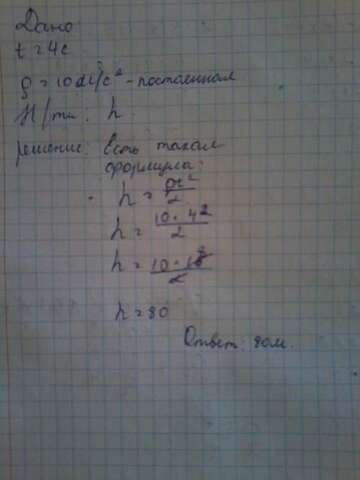 Дано
t = 4с
g = 10 м/с² - постоянная
Н/ти: h
решение: Есть такая
формула:
h = gt²/2
h = 10 · 4²/2
h = 10 · 16/2
h = 80
Ответ: 80м.